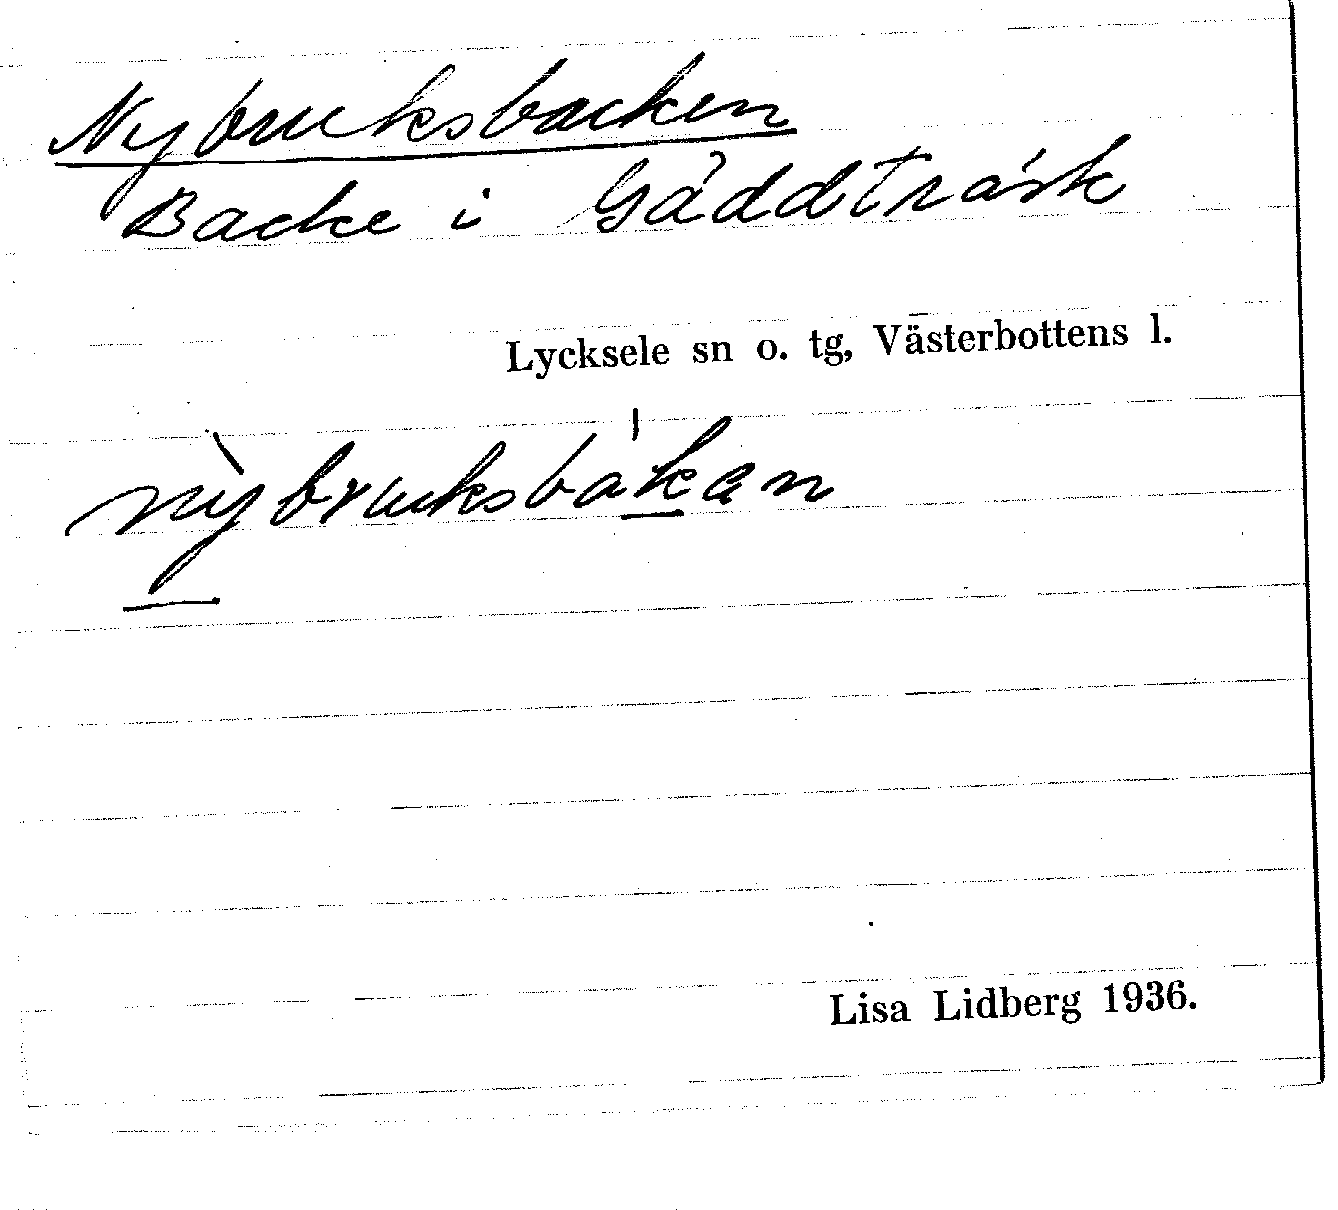 Nybruksbacken
Backe i Gäddträsk
Lycksele sn o. tg, Västerbottens l.
nỳbruksbákan
Lisa Lidberg 1936.